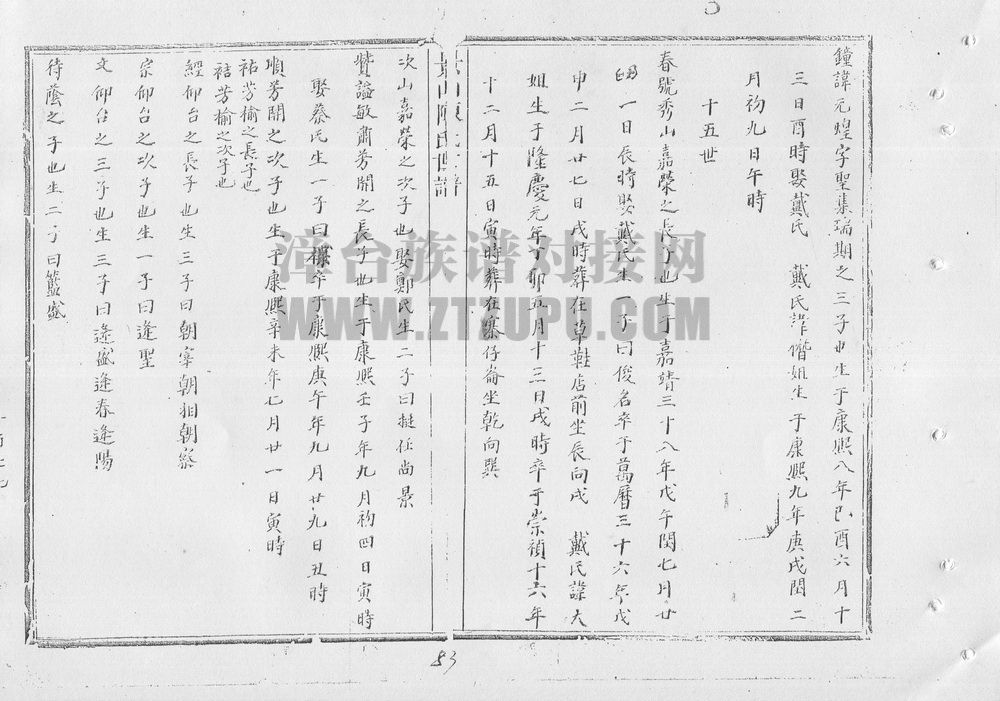 鐘諱元煌字聖集瑞期之三子也生于康熙八年己酉六月十
三日酉時娶戴氏　戴氏諱僭姐生于康熙九年庚戌閏二
月初九日午時
十五世
春號秀山嘉榮之長子也生于嘉靖三十八年戊午閏七月廿
一日辰時娶戴氏生一子曰俊名卒于萬曆三十六年戊
申二月廿七日戌時葬在草鞋店前坐辰向戌　戴氏諱大
姐生于隆慶元年丁卯五月十三日戌時卒于崇禎十六年
十二月十五日寅時葬在寨仔崙坐乾向巽
陳氏世譜
次山嘉榮之次子也娶鄭氏生二子曰挺任尚景
贊謚敏肅芳開之長子也生于康熙壬子年九月初四日寅時
娶蔡氏生一子曰樣卒于康熙庚午年九月廿九日丑時
順芳開之次子也生于康熙辛未年七月廿一日寅時
祐芳榆之長子也
祜芳榆之次子也
經仰台之長子也生三子曰朝宰朝相朝察
宗仰台之次子也生一子曰逢聖
文仰台之三子也生三子曰逢盛逢春逢陽
待蔭之子也生二子曰籃盛
漳台族谱对接网
WWW.ZTZUPU.COM
83